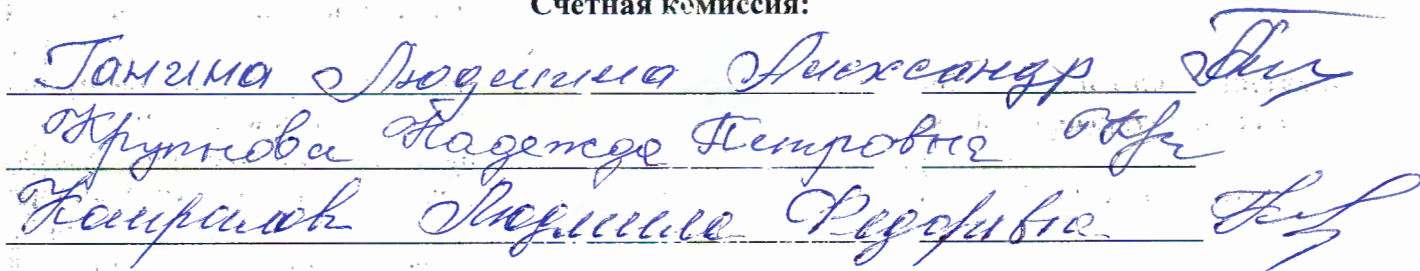 Счетная комиссия:
Ганина Людмила Александр
Крупнова Надежда Петровна
Людмила Федоровна